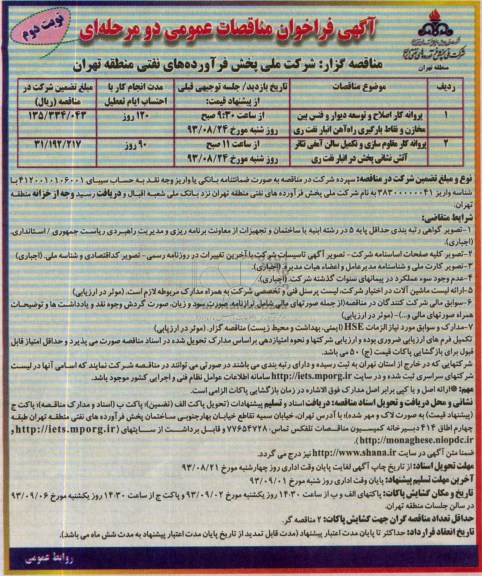 نوبت دوم
آگهی فراخوان مناقصات عمومی دو مرحله‌ای
منطقه تهران
مناقصه گزار: شرکت ملی پخش فرآورده‌های نفتی منطقه تهران
ردیف
موضوع مناقصات
تاریخ بازدید/ جلسه توجیهی قبلی از پیشنهاد قیمت:
مدت انجام کار با احتساب ایام تعطیل
مبلغ تضمین شرکت در مناقصه (ریال)
۱
پروانه کار اصلاح و توسعه دیوار و فنس بین مخازن و نقاط بارگیری راه‌آهن انبار نفت ری
از ساعت ۹:۳۰ صبح روز شنبه مورخ ۹۳/۰۸/۲۴
۱۲۰ روز
۱۳۵/۳۳۴/۰۴۳
۲
پروانه کار مقاوم سازی و تکمیل سالن آمفی تئاتر آتش نشانی پخش در انبار نفت ری
از ساعت ۱۱ صبح روز شنبه مورخ ۹۳/۰۸/۲۴
۹۰ روز
۳۱/۱۹۲/۲۱۷
نوع و مبلغ تضمین شرکت در مناقصه: سپرده شرکت در مناقصه به صورت ضمانتنامه بانکی یا واریز وجه نقد به حساب سیبای ۴۱۲۰۰۱۰۱۰۶۰۰۱ با
به نام شرکت ملی پخش فرآورده های نفتی منطقه تهران نزد بانک ملی شعبه اقبال و دریافت رسید وجه از خزانه منطقه
تهران.
شرایط متقاضی:
۱-تصویر گواهی رتبه بندی حداقل پایه ۵ در رشته ابنیه یا ساختمان و تجهیزات از معاونت برنامه ریزی و مدیریت راهبردی ریاست جمهوری / استانداری.
(اجباری).
۲-تصویر کلیه صفحات اساسنامه شرکت - تصویر آگهی تاسیسات شرکت با آخرین تغییرات در روزنامه رسمی - تصویر کداقتصادی و شناسه ملی. (اجباری).
۳-تصویر کارت ملی و شناسنامه مدیرعامل و اعضاء هیات مدیره. (اجباری).
۴-عدم وجود سوء عملکرد در پیمانهای سنوات گذشته شرکت. (اجباری).
۵-ارائه لیست ماشین آلات در اختیار شرکت، لیست پرسنل فنی و تخصصی شرکت به همراه مدارک مربوطه لازم است. (موثر در ارزیابی)
۶-سوابق مالی شرکت کنندگان در مناقصه(از جمله صورتهای مالی شامل ترازنامه، صورت سود و زیان، صورت گردش وجوه نقد و یادداشت ها و توضیحات
همراه صورتهای مالی و...)- (موثر در ارزیابی)
۷-مدارک و سوابق مورد نیاز الزامات HSE (ایمنی، بهداشت و محیط زیست) مناقصه گزار. (موثر در ارزیابی)
تکمیل فرم های ارزیابی ضروری بوده و ارزیابی شرکتها و نحوه امتیازدهی براساس مدارک تحویل شده در اسناد مناقصه صورت می پذیرد و حداقل امتیاز قابل
قبول برای بازگشایی پاکات قیمت (ج) ۵۰ می باشد.
شرکتهایی که در خارج از استان تهران به ثبت رسیده و دارای رتبه بندی می باشند در صورتی می توانند در مناقصه شرکت نمایند که اسامی آنها در لیست
شرکتهای سراسری ثبت شده و در سایت http://iets.mporg.ir سامانه اطلاعات عوامل نظام فنی و اجرایی کشور موجود باشد.
مهم: ارائه اصل و یا کپی برابر اصل مدارک فوق الاشاره در زمان بازگشایی پاکات الزامی است.
نشانی و محل دریافت و تحویل اسناد مناقصه: دریافت اسناد و تسلیم پیشنهادات (تحویل پاکت الف (تضمین)؛ پاکت ب (اسناد و مدارک مناقصه)؛ پاکت ج
(پیشنهاد قیمت) به صورت لاک و مهر شده)؛ با آدرس تهران، خیابان سمیه تقاطع خیابان بهار جنوبی، ساختمان پخش فرآورده های نفتی منطقه تهران، طبقه
چهارم اطاق ۴۱۴ دبیرخانه کمیسیون مناقصات تلفکس تماس: ۷۷۶۵۴۷۲۸ و قابل برداشت از سایتهای (http://iets.mporg.ir و
http://monaghese.niopdc.ir).
ضمنا متن آگهی در سایت http://www.shana.ir نیز درج می گردد.
مهلت تحویل اسناد: از تاریخ چاپ آگهی لغایت پایان وقت اداری روز چهارشنبه مورخ ۹۳/۰۸/۲۱
آخرین مهلت تسلیم پیشنهاد: پایان وقت اداری روز شنبه مورخ ۹۳/۰۹/۰۱
تاریخ و مکان گشایش پاکات: پاکتهای الف و ب از ساعت ۱۴:۳۰ روز یکشنبه مورخ ۹۳/۰۹/۰۲ و پاکت ج از ساعت ۱۴:۳۰ روز یکشنبه مورخ ۹۳/۰۹/۰۶
در سالن جلسات منطقه تهران.
حداقل تعداد مناقصه گران جهت گشایش پاکات: ۲ مناقصه گر.
تاریخ انعقاد قرارداد: حداکثر تا پایان مدت اعتبار پیشنهاد (مدت قابل تمدید از تاریخ پایان مدت اعتبار پیشنهاد به مدت شش ماه می باشد).
روابط عمومی